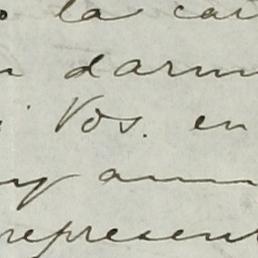 la car
darm
Vos. en
y am
represent